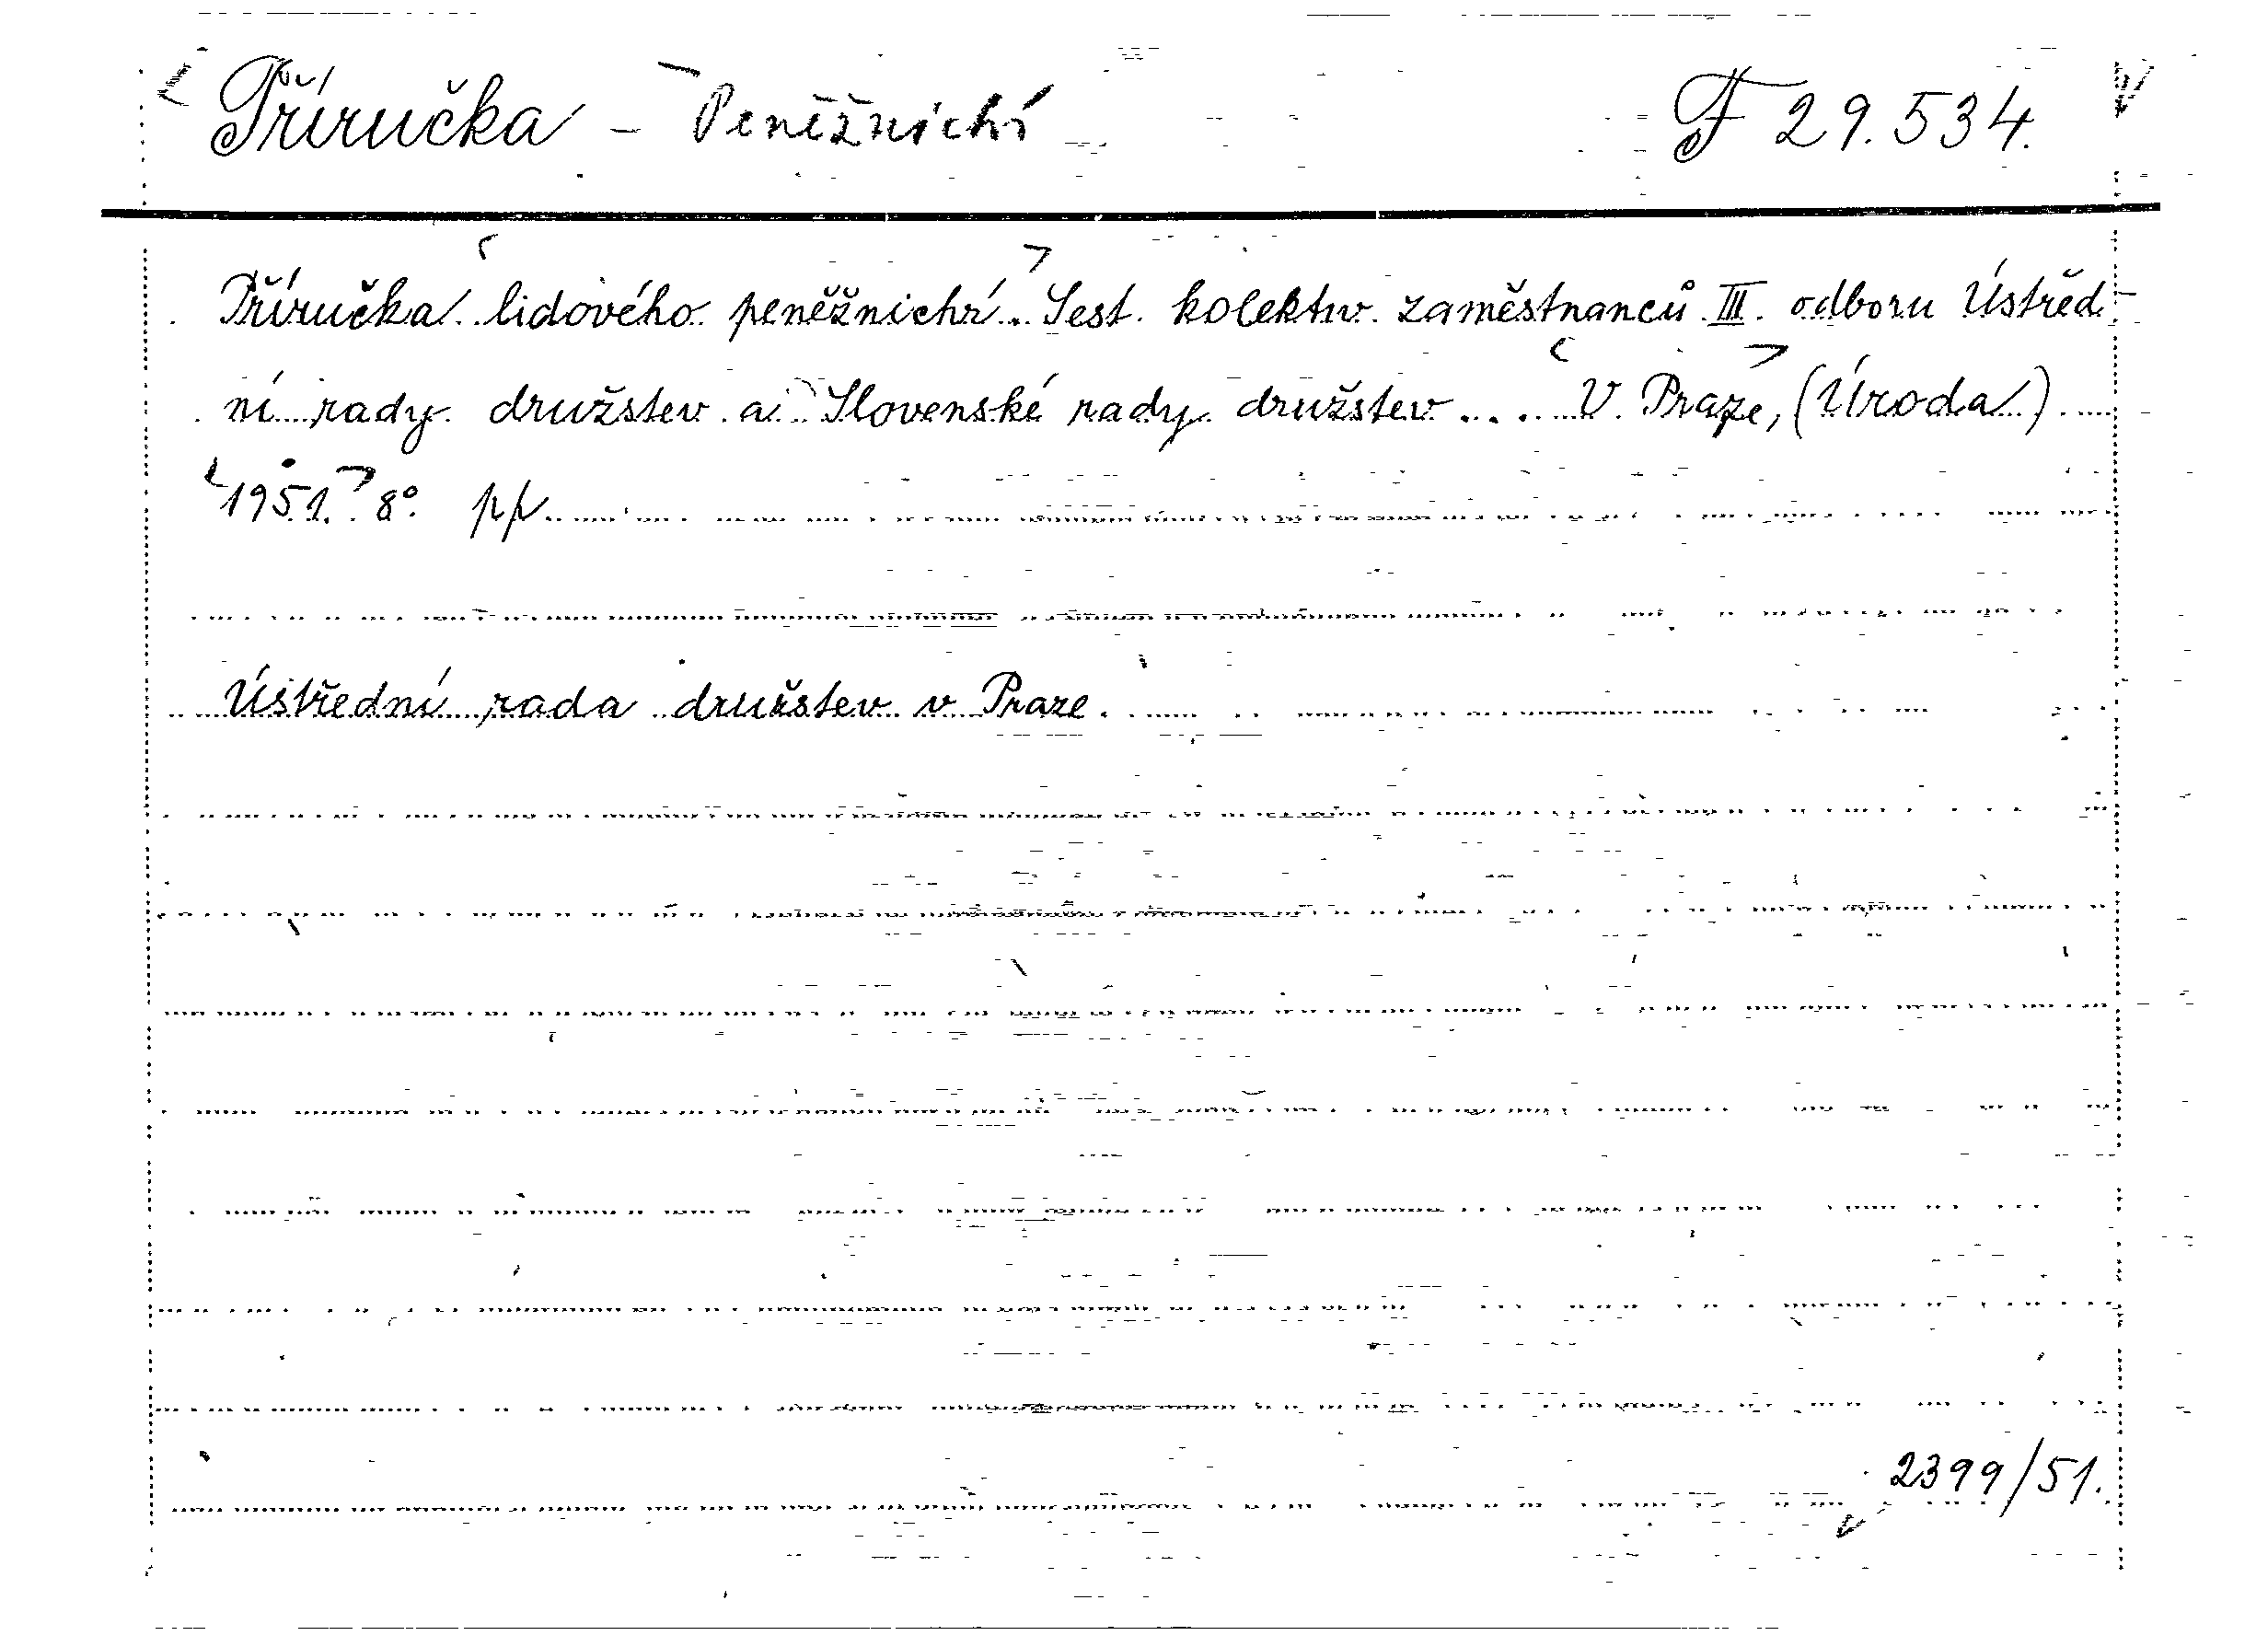 Příručka - Peněžnictví F 29.534.
Příručka lidového peněžnictví. Sest. kolektiv zaměstnanců III. odboru Ústřed-
ní rady družstev a Slovenské rady družstev.... V Praze, (Úroda)
1951. 8°. pp.
Ústřední rada družstev v Praze.
2399/51.